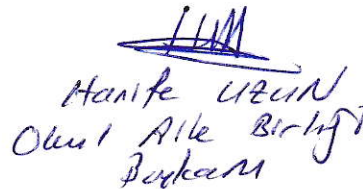 Hanife UZUN
Okul Aile Birliği
Başkanı